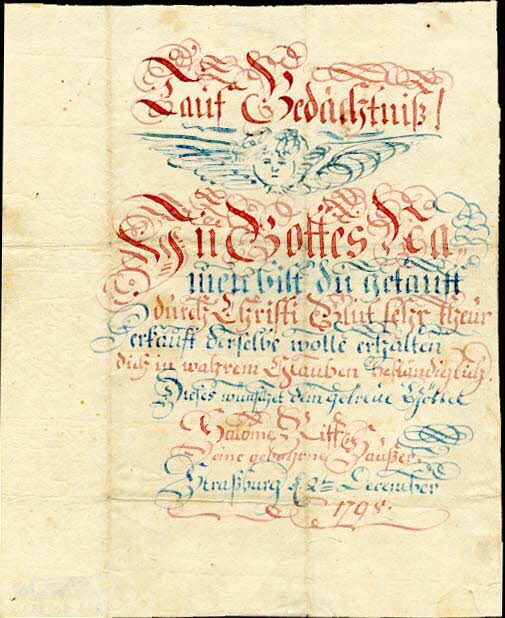 Tauf Gedächtniß!
In Gottes Na„
men bist du getauft
durch Christi Blut sehr theur
erkauft derselbe wolle erhalten
dich in wahrem Glauben beständiglich.
Dieses wünschet dem getreue Göttel
Salome
eine gebohrne Häußer
Straßburg d. 2ten December
1798.